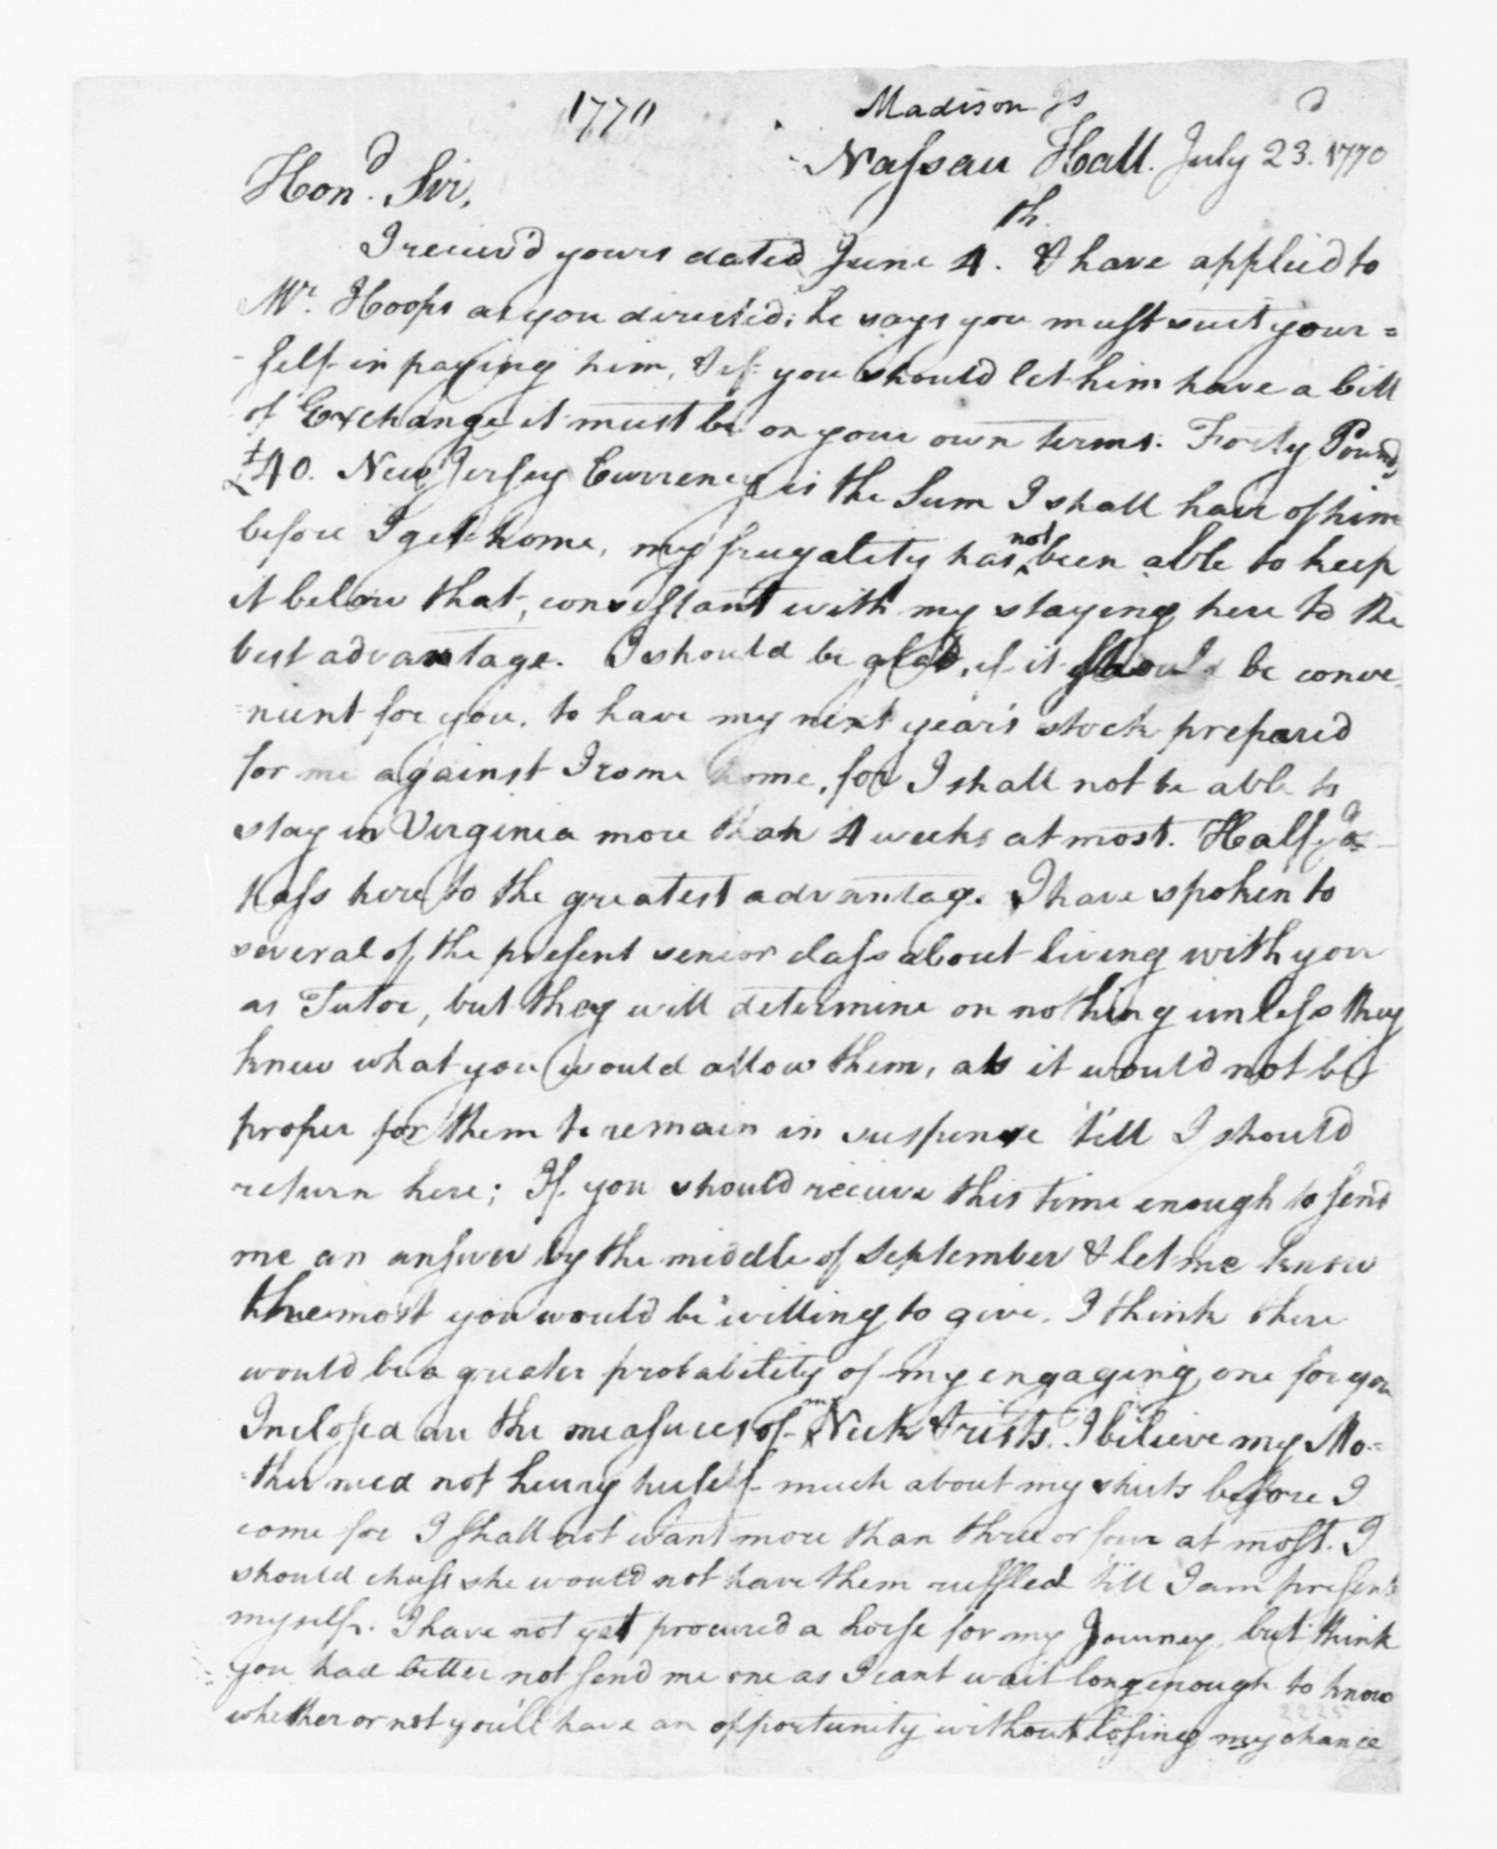 1770
Madison Js
Nassau Hall. July 23.d 1770
Hond. Sir,
I receiv'd yours dated June 4th. & have applied to
Mr. Hoops as you directed; he says you must suit your=
self in paying him, & if you should let him have a bill
of Exchange it must be on your own terms. Forty Pounds
£40. New Jersey Currency is the Sum I shall have of him
before I get home, my frugality has not been able to keep
it below that, consistant with my staying here to the
best advantage. I should be glad, if it should be conve
=nient for you, to have my next year's stock prepared
for me against I come home, for I shall not be able to
stay in Virginia more than 4 weeks at most. Half Jo's
pass here to the greatest advantage. I have spoken to
several of the present senior class about living with you
as Tutor, but they will determine on nothing unless they
knew what you would allow them, as it would not be
proper for them to remain in suspense 'till I should
return here; If you should receive this time enough to send
me an answer by the middle of September & let me know
the most you would be willing to give, I think there
would be a greater probability of my engaging one for you
Inclosed are the measures of my Neck & rists. I believe my Mo=
=ther need not hurry herself much about my shirts before I
come for I shall not want more than three or four at most. I
should chuse she would not have them ruffled 'till I am present
myself. I have not yet procured a horse for my Journey, but think
you had better not send me one as I cant wait long enough to know
whether or not you'll have an opportunity without losing my chance
2225